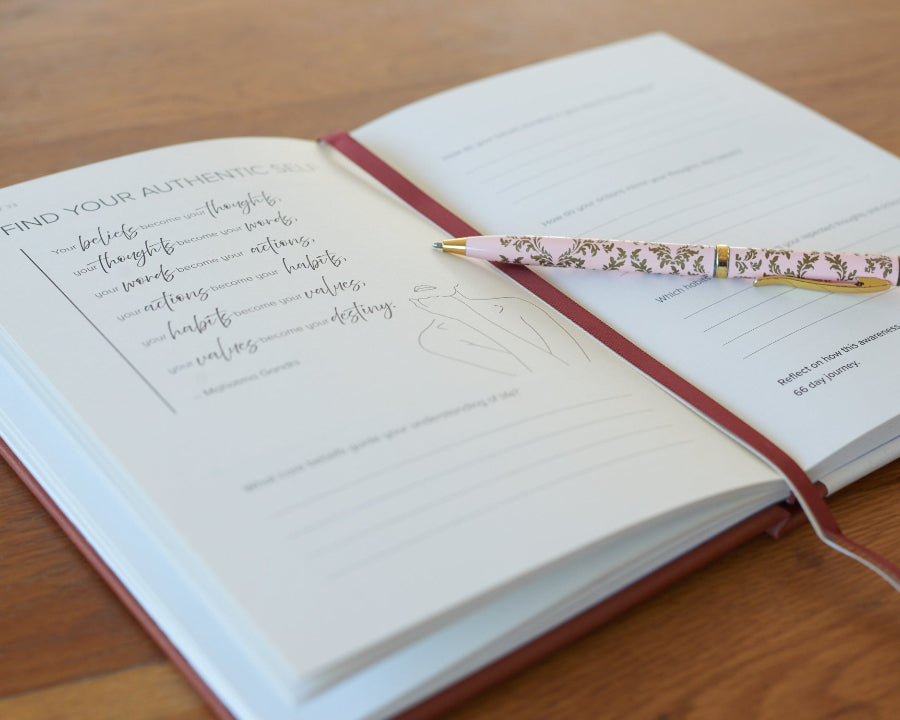 FIND YOUR AUTHENTIC SELF
Your beliefs become your thoughts,
your thoughts become your words,
your words become your actions,
your actions become your habits,
your habits become your values,
your values become your destiny.
- Mahatma Gandhi
What core beliefs guide your understanding of life?
How do your actions mirror your thoughts and beliefs?
Which habits
Reflect on how this awareness
66 day journey.